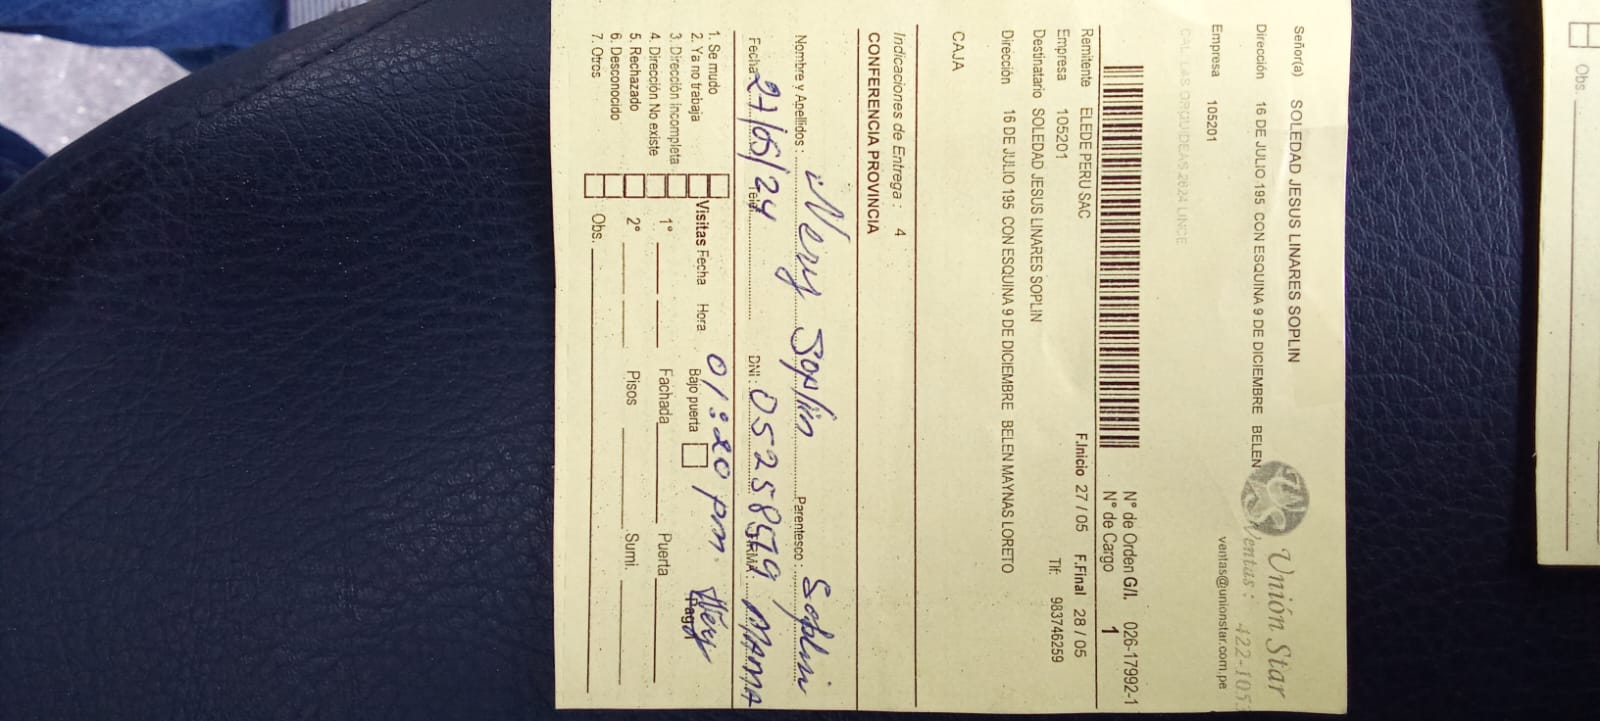 Señor(a) SOLEDAD JESUS LINARES SOPLIN
Unión Star
Dirección 16 DE JULIO 195 CON ESQUINA 9 DE DICIEMBRE BELEN
Ventas : 422-105
Empresa 105201
ventas@unionstar.com.pe
CAL LAS ORQUIDEAS 2624 LINCE
N° de Orden G/I. 026-17992-1
N° de Cargo 1
Remitente ELEDE PERU SAC F.Inicio 27 / 05 F.Final 28 / 05
Empresa 105201 Tlf: 983746259
Destinatario SOLEDAD JESUS LINARES SOPLIN
Dirección 16 DE JULIO 195 CON ESQUINA 9 DE DICIEMBRE BELEN MAYNAS LORETO
CAJA
Indicaciones de Entrega : 4
CONFERENCIA PROVINCIA
Nombre y Apellidos : Nery Soplin Parentesco : Soplin
Fecha 27/05/24 Telf. DNI : 05258579 FIRMA : MAMA
1. Se mudo 01:20 pm. Nery
2. Ya no trabaja Visitas Fecha Hora Bajo puerta
3. Dirección incompleta 1° Fachada Puerta
4. Dirección No existe
5. Rechazado 2° Pisos Sumi.
6. Desconocido
7. Otros Obs.
Obs.